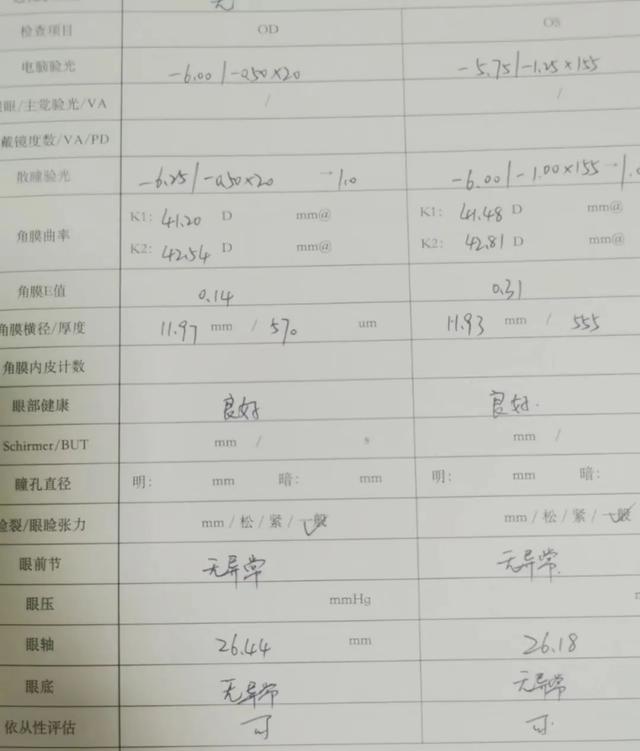 无
检查项目 OD OS
电脑验光 -6.00/-0.50×20 -5.75/-1.25×155
眼/主觉验光/VA / /
戴镜度数/VA/PD
散瞳验光 -6.25/-0.50×20 →1.0 -6.00/-1.00×155→1.0
角膜曲率 K1: 41.20 D mm@ K1: 41.48 D mm@
K2: 42.54 D mm@ K2: 42.81 D mm@
角膜E值 0.14 0.31
角膜横径/厚度 11.97 mm / 570 um 11.93 mm / 555
角膜内皮计数
眼部健康 良好 良好.
Schirmer/BUT mm / s mm /
瞳孔直径 明: mm 暗: mm 明: mm 暗:
睑裂/眼睑张力 mm/松/紧/一般 mm/松/紧/一般
眼前节 无异常 无异常.
眼压 mmHg
眼轴 26.44 mm 26.18
眼底 无异常 无异常
依从性评估 可 可.